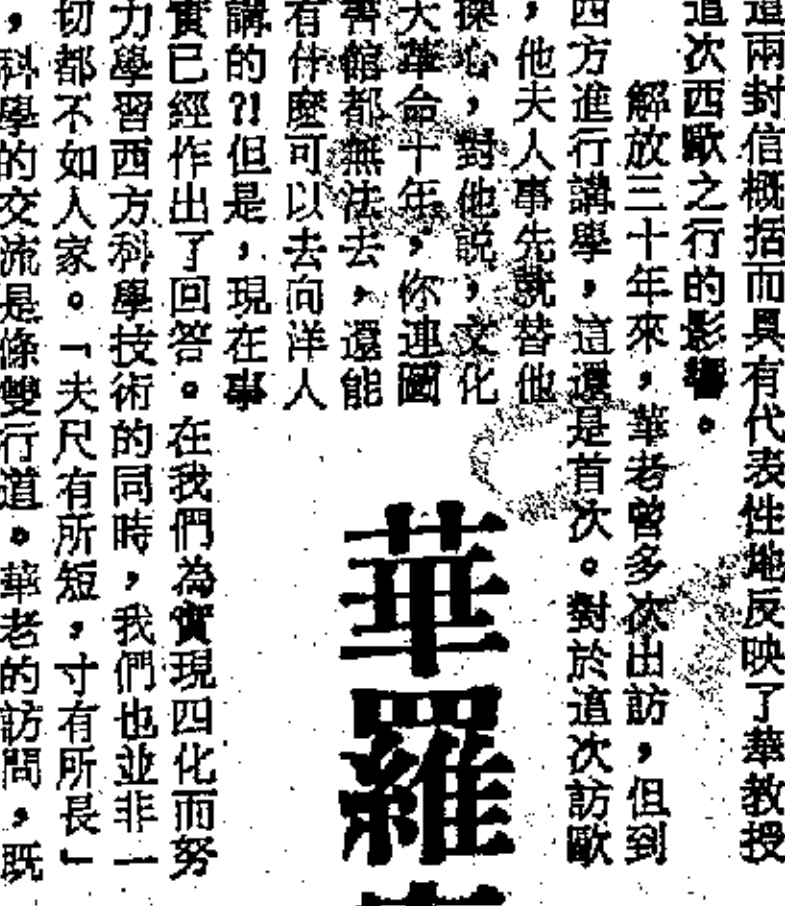 這兩封信概括而具有代表性地反映了華教授
這次西歐之行的影響。
解放三十年來，華老曾多次出訪，但到
西方進行講學，這還是首次。對於這次訪歐
，他夫人事先就替他
操心，對他説，文化
大革命十年，你連圖
書館都無法去，還能
有什麼可以去向洋人
講的?!但是，現在事
實已經作出了回答。在我們為實現四化而努
力學習西方科學技術的同時，我們也並非一
切都不如人家。「夫尺有所短，寸有所長」
，科學的交流是條雙行道。華老的訪問，既
華羅